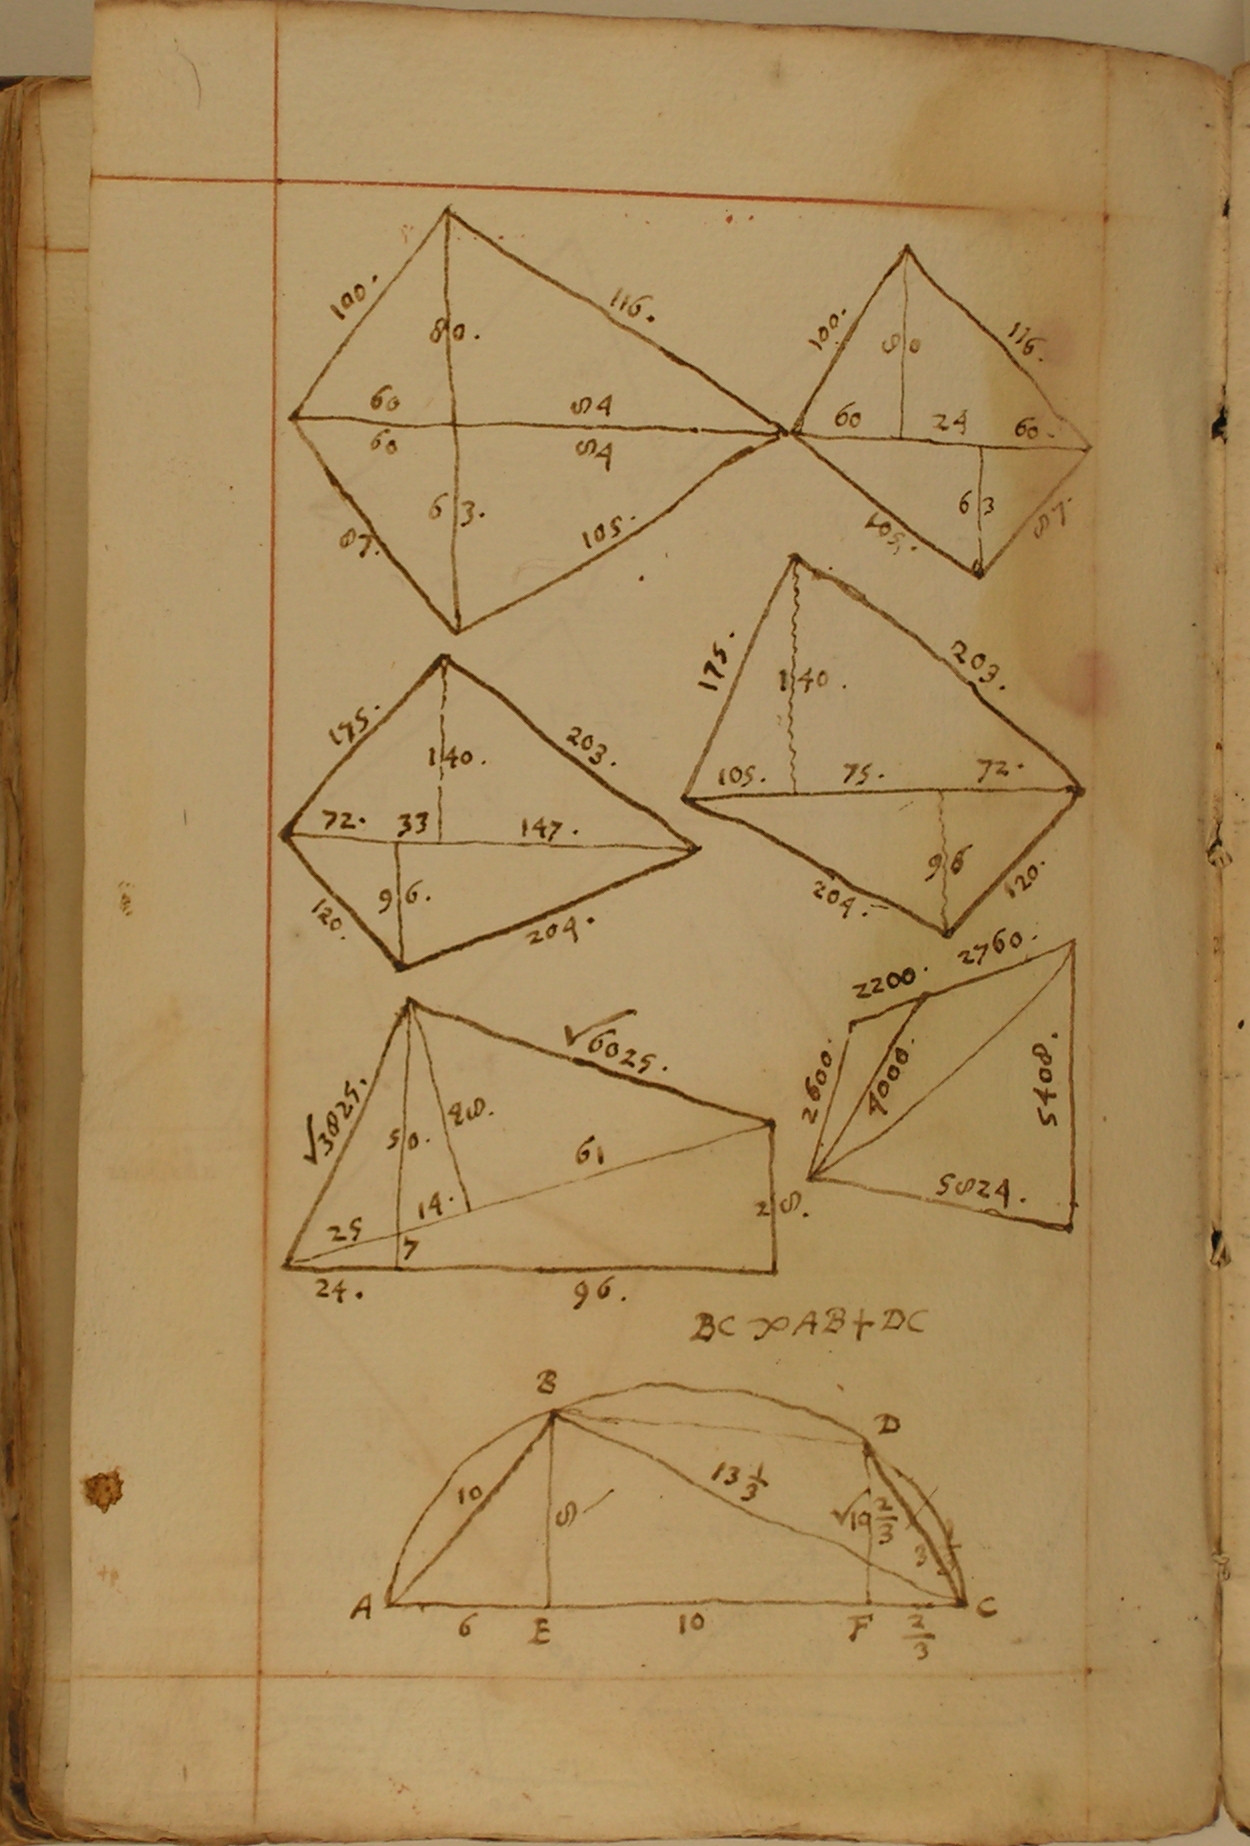 100.
116.
80.
60
84
60
84
63.
87.
105.
100.
116.
80
60
24
60.
63
105.
87.
175.
203.
140.
72.
33
147.
96.
120.
204.
175.
203.
140.
105.
75.
72.
96
204.
120.
√3825.
√6025.
50.
48.
61
14.
25
7
28.
24.
96.
2200.
2760.
2600.
4000.
5408.
5824.
BC ∞ AB + DC
B
D
10
8
13 1/3
√10 2/3
3 1/3
A
C
6
E
10
F
2/3